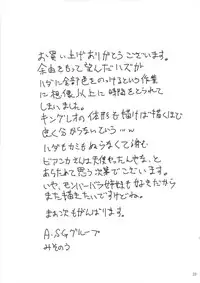 お買い上げありがとうございます。
余白をもって望んだハズが
ハダに全部色をのっけるという作業
に想像以上に時間をとられて
しまいました。
キングレオの体形も描けば描くほど
良く分からないでいうｗｗ
ハダもカミもぬらなくて済む
ビアンカさんは天使やったんやな、と
あらためて思う次第でございます。
いや、モンバーバラ姉妹も好きだから
また描きたいですけどね。
まぁ次もがんばります。
A.S.Gグループ
みそのう